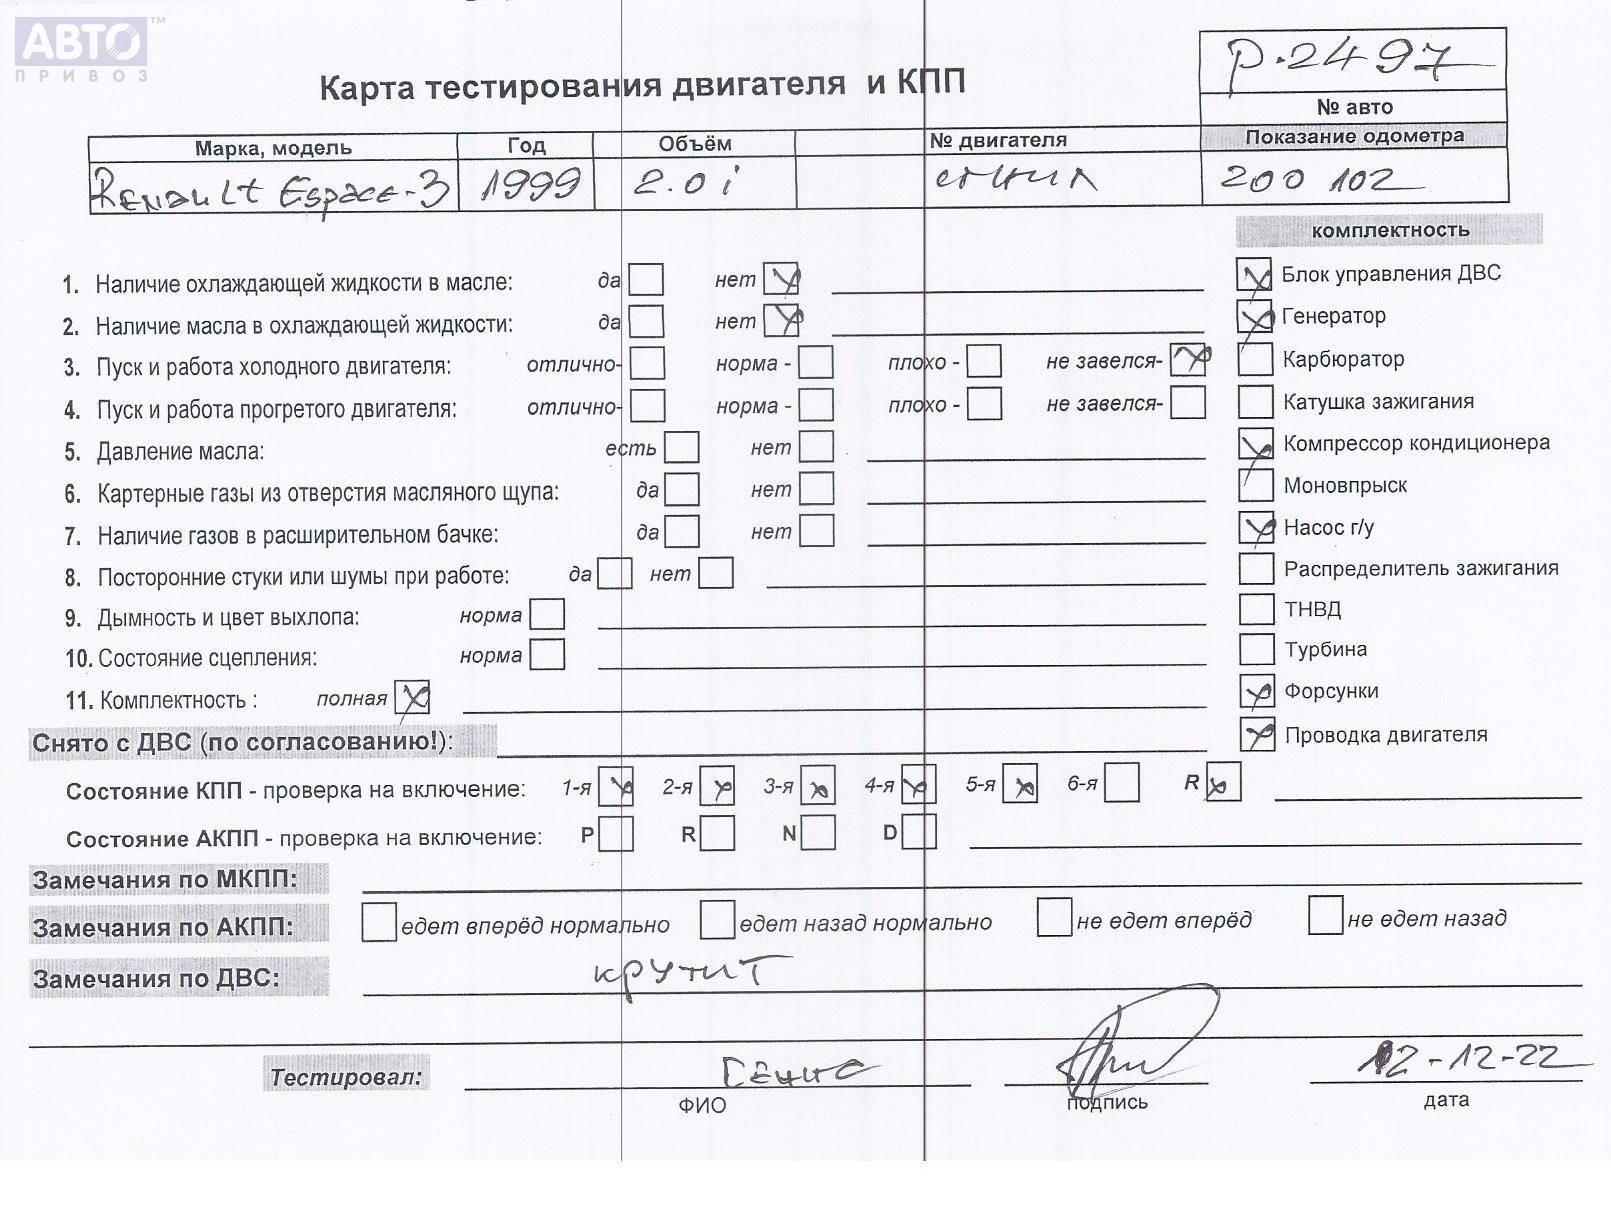 АВТО™
ПРИВОЗ
Р.2497
Карта тестирования двигателя и КПП
№ авто
Марка, модель Год Объём № двигателя Показание одометра
Renault Espace-3 1999 2.0 i сгнил 200 102
комплектность
1. Наличие охлаждающей жидкости в масле: да нет
Блок управления ДВС
2. Наличие масла в охлаждающей жидкости: да нет
Генератор
3. Пуск и работа холодного двигателя: отлично- норма - плохо - не завелся-
Карбюратор
4. Пуск и работа прогретого двигателя: отлично- норма - плохо - не завелся-
Катушка зажигания
5. Давление масла: есть нет
Компрессор кондиционера
6. Картерные газы из отверстия масляного щупа: да нет
Моновпрыск
7. Наличие газов в расширительном бачке: да нет
Насос г/у
8. Посторонние стуки или шумы при работе: да нет
Распределитель зажигания
9. Дымность и цвет выхлопа: норма
ТНВД
10. Состояние сцепления: норма
Турбина
11. Комплектность : полная
Форсунки
Снято с ДВС (по согласованию!):
Проводка двигателя
Состояние КПП - проверка на включение: 1-я 2-я 3-я 4-я 5-я 6-я R
Состояние АКПП - проверка на включение: P R N D
Замечания по МКПП:
Замечания по АКПП: едет вперёд нормально едет назад нормально не едет вперёд не едет назад
Замечания по ДВС: крутит
Тестировал: 12-12-22
ФИО подпись дата